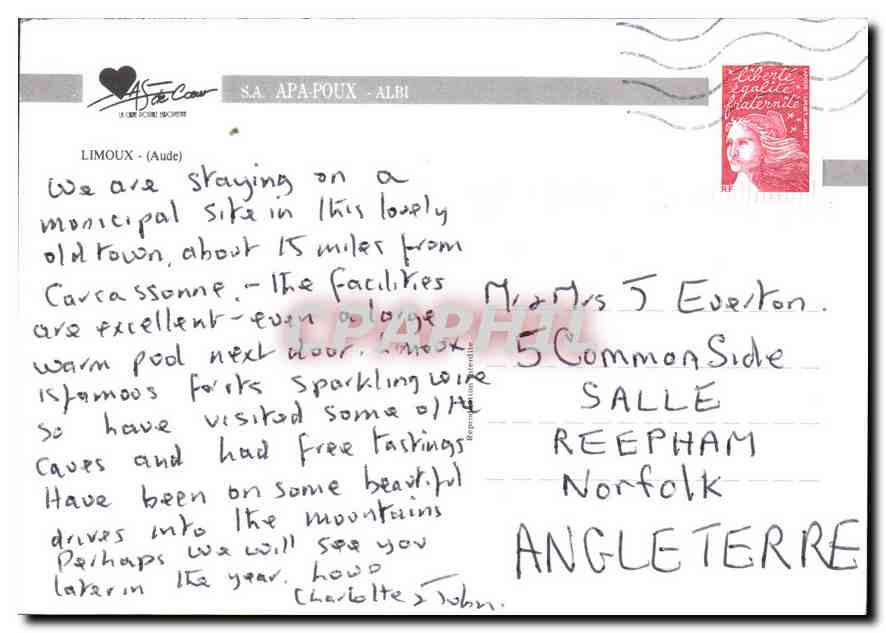 As de Cœur
LA CARTE POSTALE EUROPEENNE
S.A. APA-POUX - ALBI
liberté
égalité
fraternité
RF
LIMOUX - (Aude)
We are staying on a
municipal site in this lovely
old town, about 15 miles from
Carcassonne. - The facilities
are excellent - even a large
warm pool next door. Limoux
is famous for its sparkling wine
so have visited some of the
caves and had free tastings
Have been on some beautiful
drives into the mountains
Perhaps we will see you
later in the year. Love
Charlotte & John.
CPAPHIL
Reproduction interdite
Mr & Mrs J Everton.
5 Common Side
SALLE
REEPHAM
Norfolk
ANGLETERRE